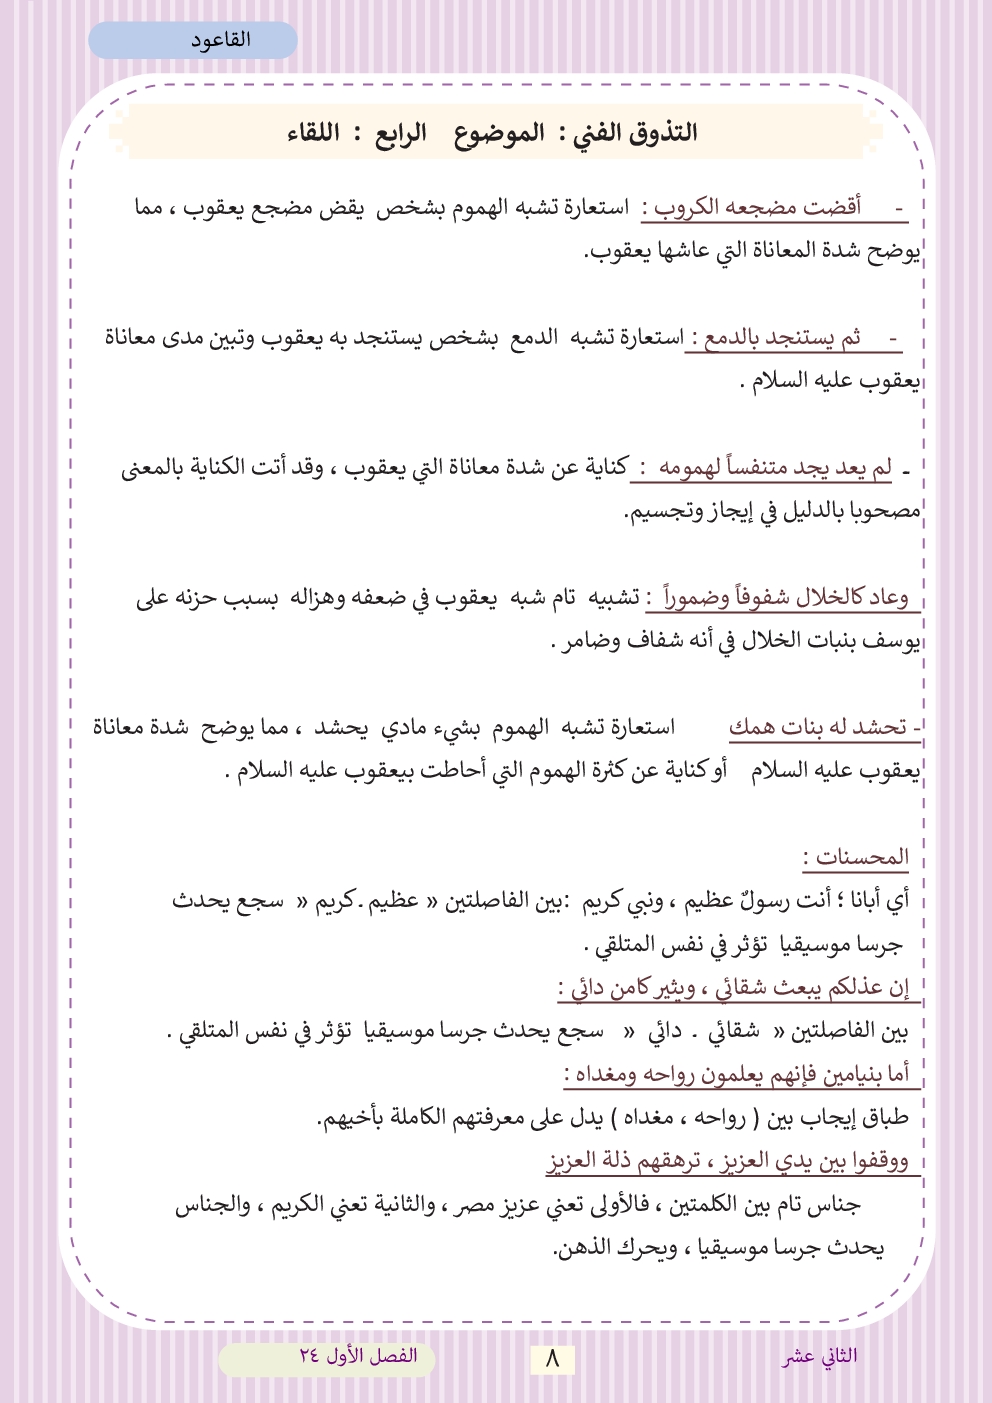 القاعود
التذوق الفني : الموضوع الرابع : اللقاء
- أقضت مضجعه الكروب : استعارة تشبه الهموم بشخص يقض مضجع يعقوب ، مما
يوضح شدة المعاناة التي عاشها يعقوب.
- ثم يستنجد بالدمع : استعارة تشبه الدمع بشخص يستنجد به يعقوب وتبين مدى معاناة
يعقوب عليه السلام .
ـ لم يعد يجد متنفساً لهمومه : كناية عن شدة معاناة التي يعقوب ، وقد أتت الكناية بالمعنى
مصحوبا بالدليل في إيجاز وتجسيم.
وعاد كالخلال شفوفاً وضموراً : تشبيه تام شبه يعقوب في ضعفه وهزاله بسبب حزنه على
يوسف بنبات الخلال في أنه شفاف وضامر .
- تحشد له بنات همك استعارة تشبه الهموم بشيء مادي يحشد ، مما يوضح شدة معاناة
يعقوب عليه السلام أو كناية عن كثرة الهموم التي أحاطت بيعقوب عليه السلام .
المحسنات :
أي أبانا ؛ أنت رسولٌ عظيم ، ونبي كريم :بين الفاصلتين « عظيم ـ كريم « سجع يحدث
جرسا موسيقيا تؤثر في نفس المتلقي .
إن عذلكم يبعث شقائي ، ويثير كامن دائي :
بين الفاصلتين « شقائي ـ دائي « سجع يحدث جرسا موسيقيا تؤثر في نفس المتلقي .
أما بنيامين فإنهم يعلمون رواحه ومغداه :
طباق إيجاب بين ( رواحه ، مغداه ) يدل على معرفتهم الكاملة بأخيهم.
ووقفوا بين يدي العزيز ، ترهقهم ذلة العزيز
جناس تام بين الكلمتين ، فالأولى تعني عزيز مصر ، والثانية تعني الكريم ، والجناس
يحدث جرسا موسيقيا ، ويحرك الذهن.
الثاني عشر ٨ الفصل الأول ٢٤